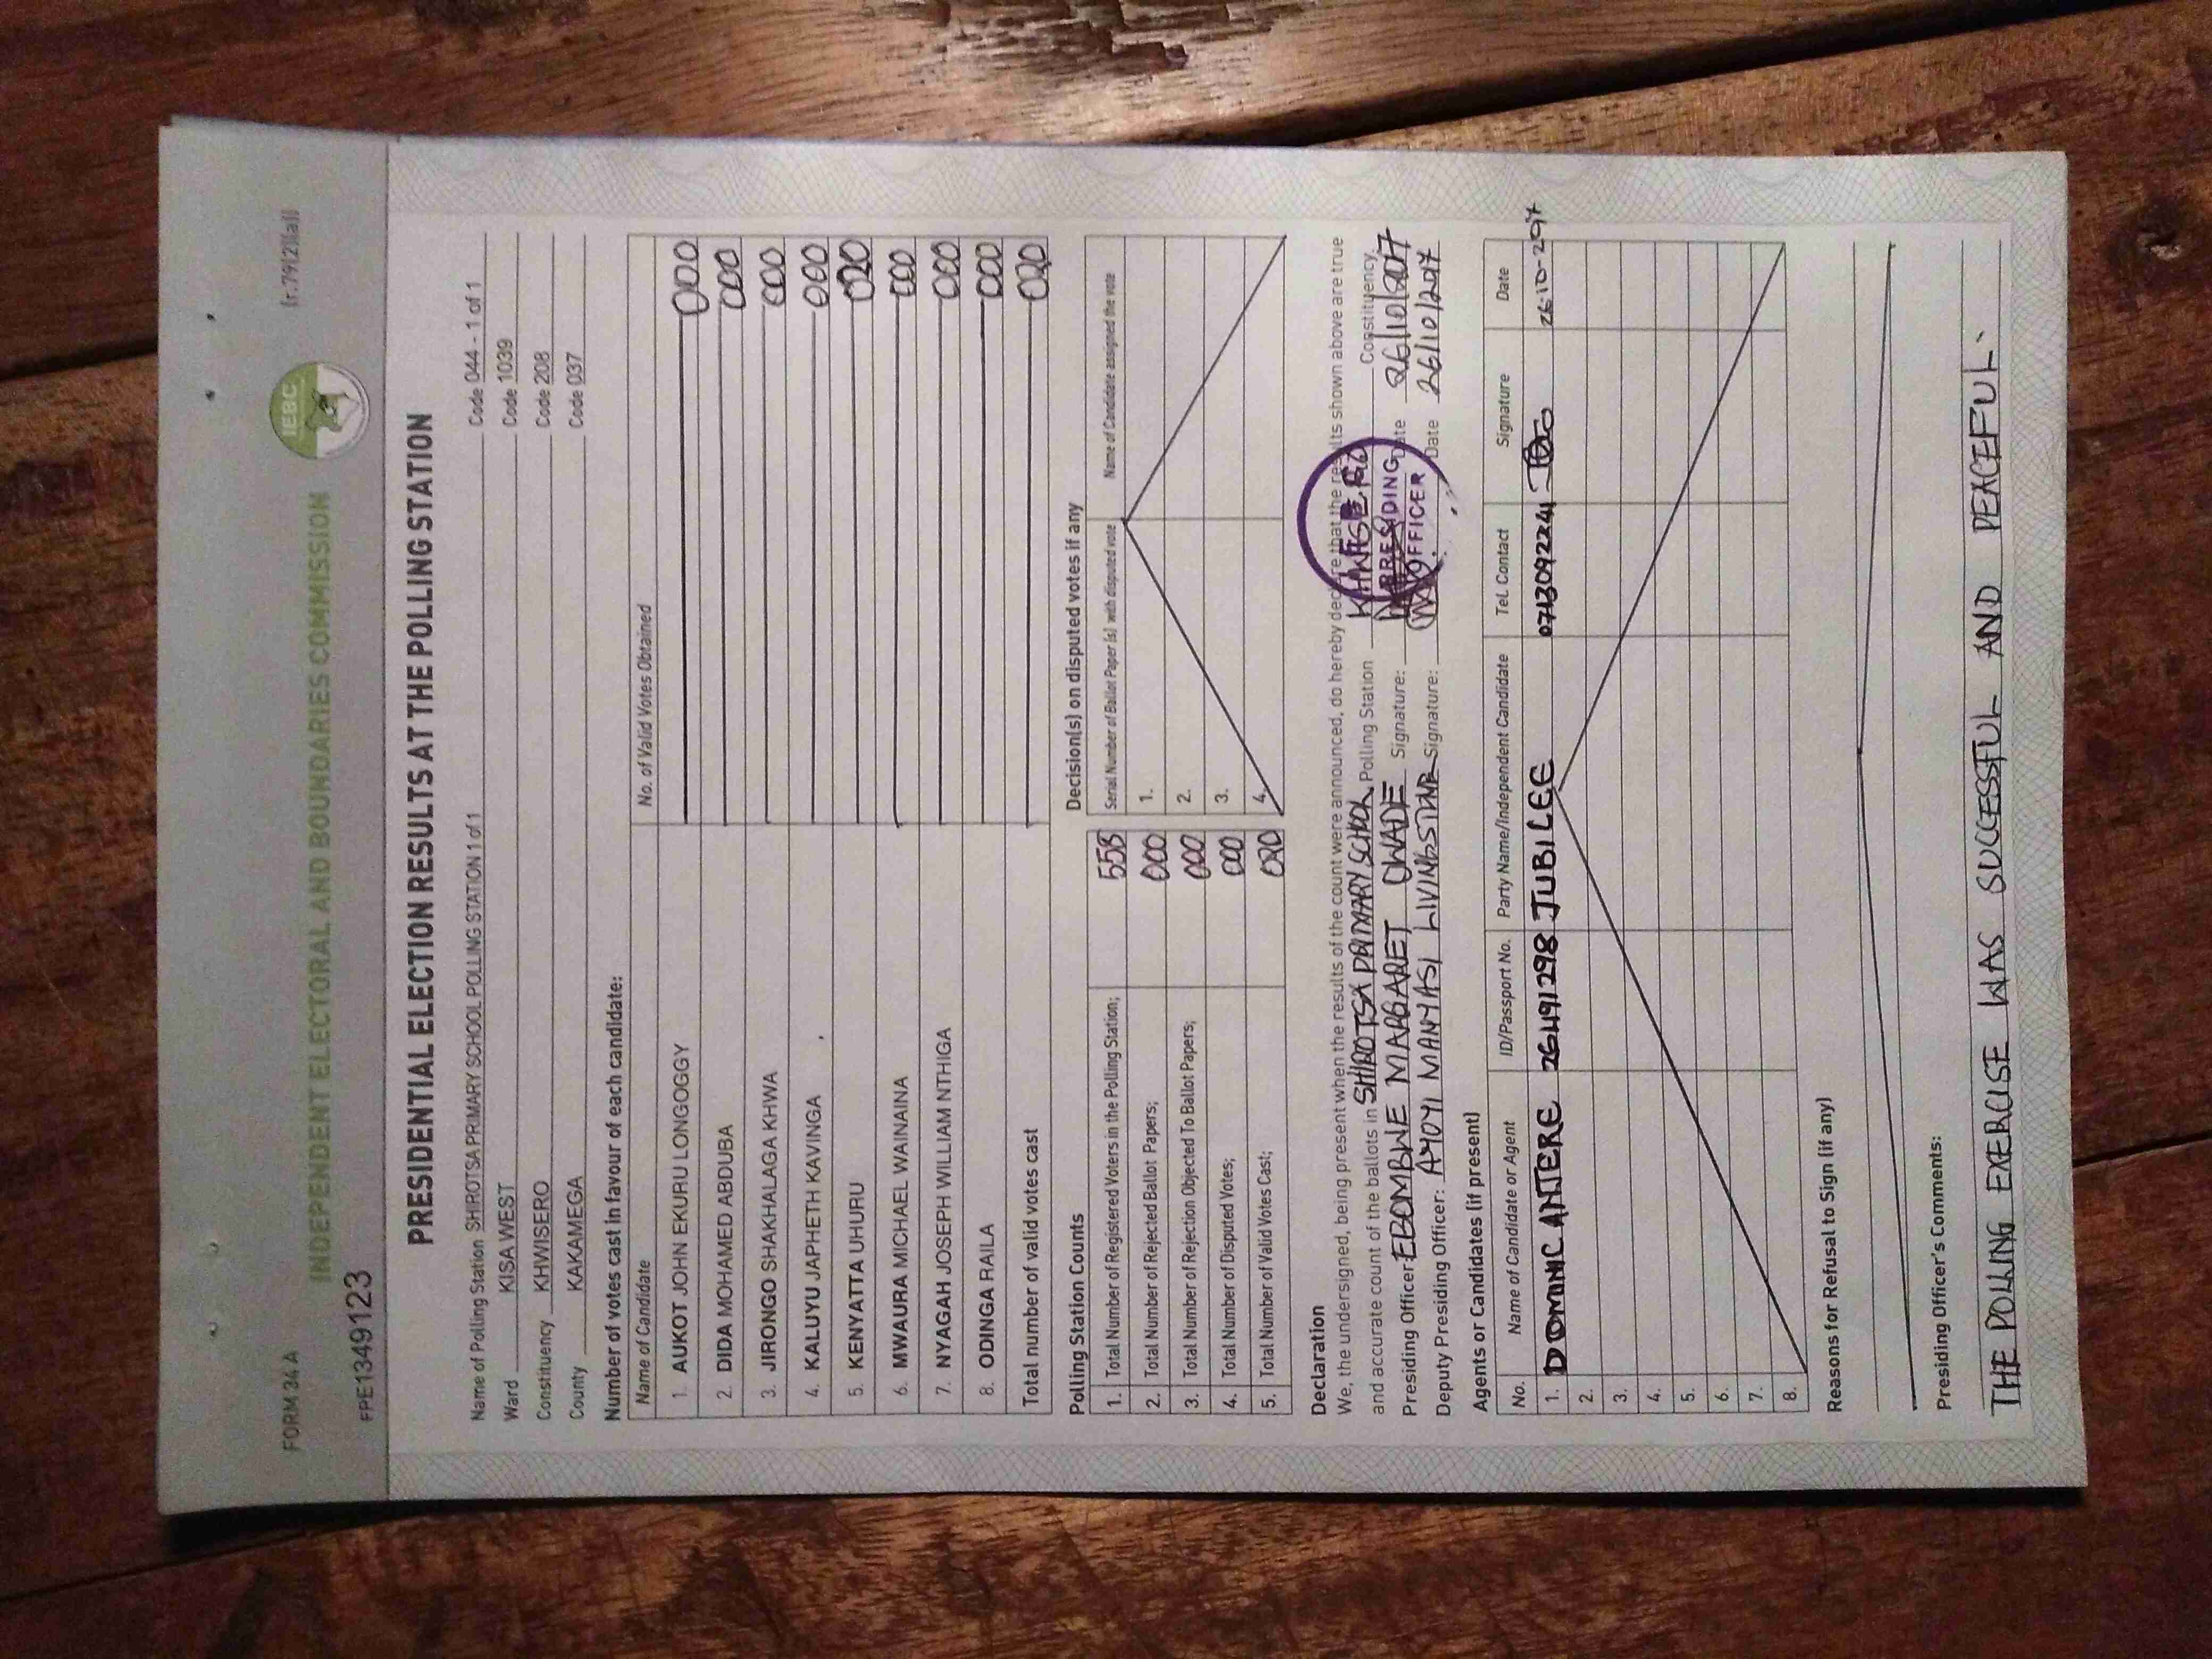 FORM 34 A
(r.79(2)(a))
IEBC
INDEPENDENT ELECTORAL AND BOUNDARIES COMMISSION
FPE1349123
PRESIDENTIAL ELECTION RESULTS AT THE POLLING STATION
Name of Polling Station SHIROTSA PRIMARY SCHOOL POLLING STATION 1 of 1 Code 044 - 1 of 1
Ward KISA WEST Code 1039
Constituency KHWISERO Code 208
County KAKAMEGA Code 037
Number of votes cast in favour of each candidate:
Name of Candidate No. of Valid Votes Obtained
1. AUKOT JOHN EKURU LONGOGGY 000
2. DIDA MOHAMED ABDUBA 000
3. JIRONGO SHAKHALAGA KHWA 000
4. KALUYU JAPHETH KAVINGA 000
5. KENYATTA UHURU 020
6. MWAURA MICHAEL WAINAINA 000
7. NYAGAH JOSEPH WILLIAM NTHIGA 000
8. ODINGA RAILA 000
Total number of valid votes cast 020
Polling Station Counts
1. Total Number of Registered Voters in the Polling Station; 558
2. Total Number of Rejected Ballot Papers; 000
3. Total Number of Rejection Objected To Ballot Papers; 000
4. Total Number of Disputed Votes; 000
5. Total Number of Valid Votes Cast; 020
Decision(s) on disputed votes if any
Serial Number of Ballot Paper (s) with disputed vote Name of Candidate assigned the vote
1.
2.
3.
4.
Declaration
We, the undersigned, being present when the results of the count were announced, do hereby declare that the results shown above are true
and accurate count of the ballots in SHIROTSA PRIMARY SCHOOL Polling Station KHWISERO Constituency
Presiding Officer: EBOMBWE MARGARET OWADE Signature: Date 26/10/2017
Deputy Presiding Officer: AYOYI MANYASI LIVINGSTONE Signature: Date 26/10/2017
PRESIDING
OFFICER
Agents or Candidates (if present)
No. Name of Candidate or Agent ID/Passport No. Party Name/Independent Candidate Tel. Contact Signature Date
1. DOMINIC ANJERE 26491298 JUBILEE 0713092241 26-10-2017
2.
3.
4.
5.
6.
7.
8.
Reasons for Refusal to Sign (if any)
Presiding Officer's Comments:
THE POLLING EXERCISE WAS SUCCESSFUL AND PEACEFUL.